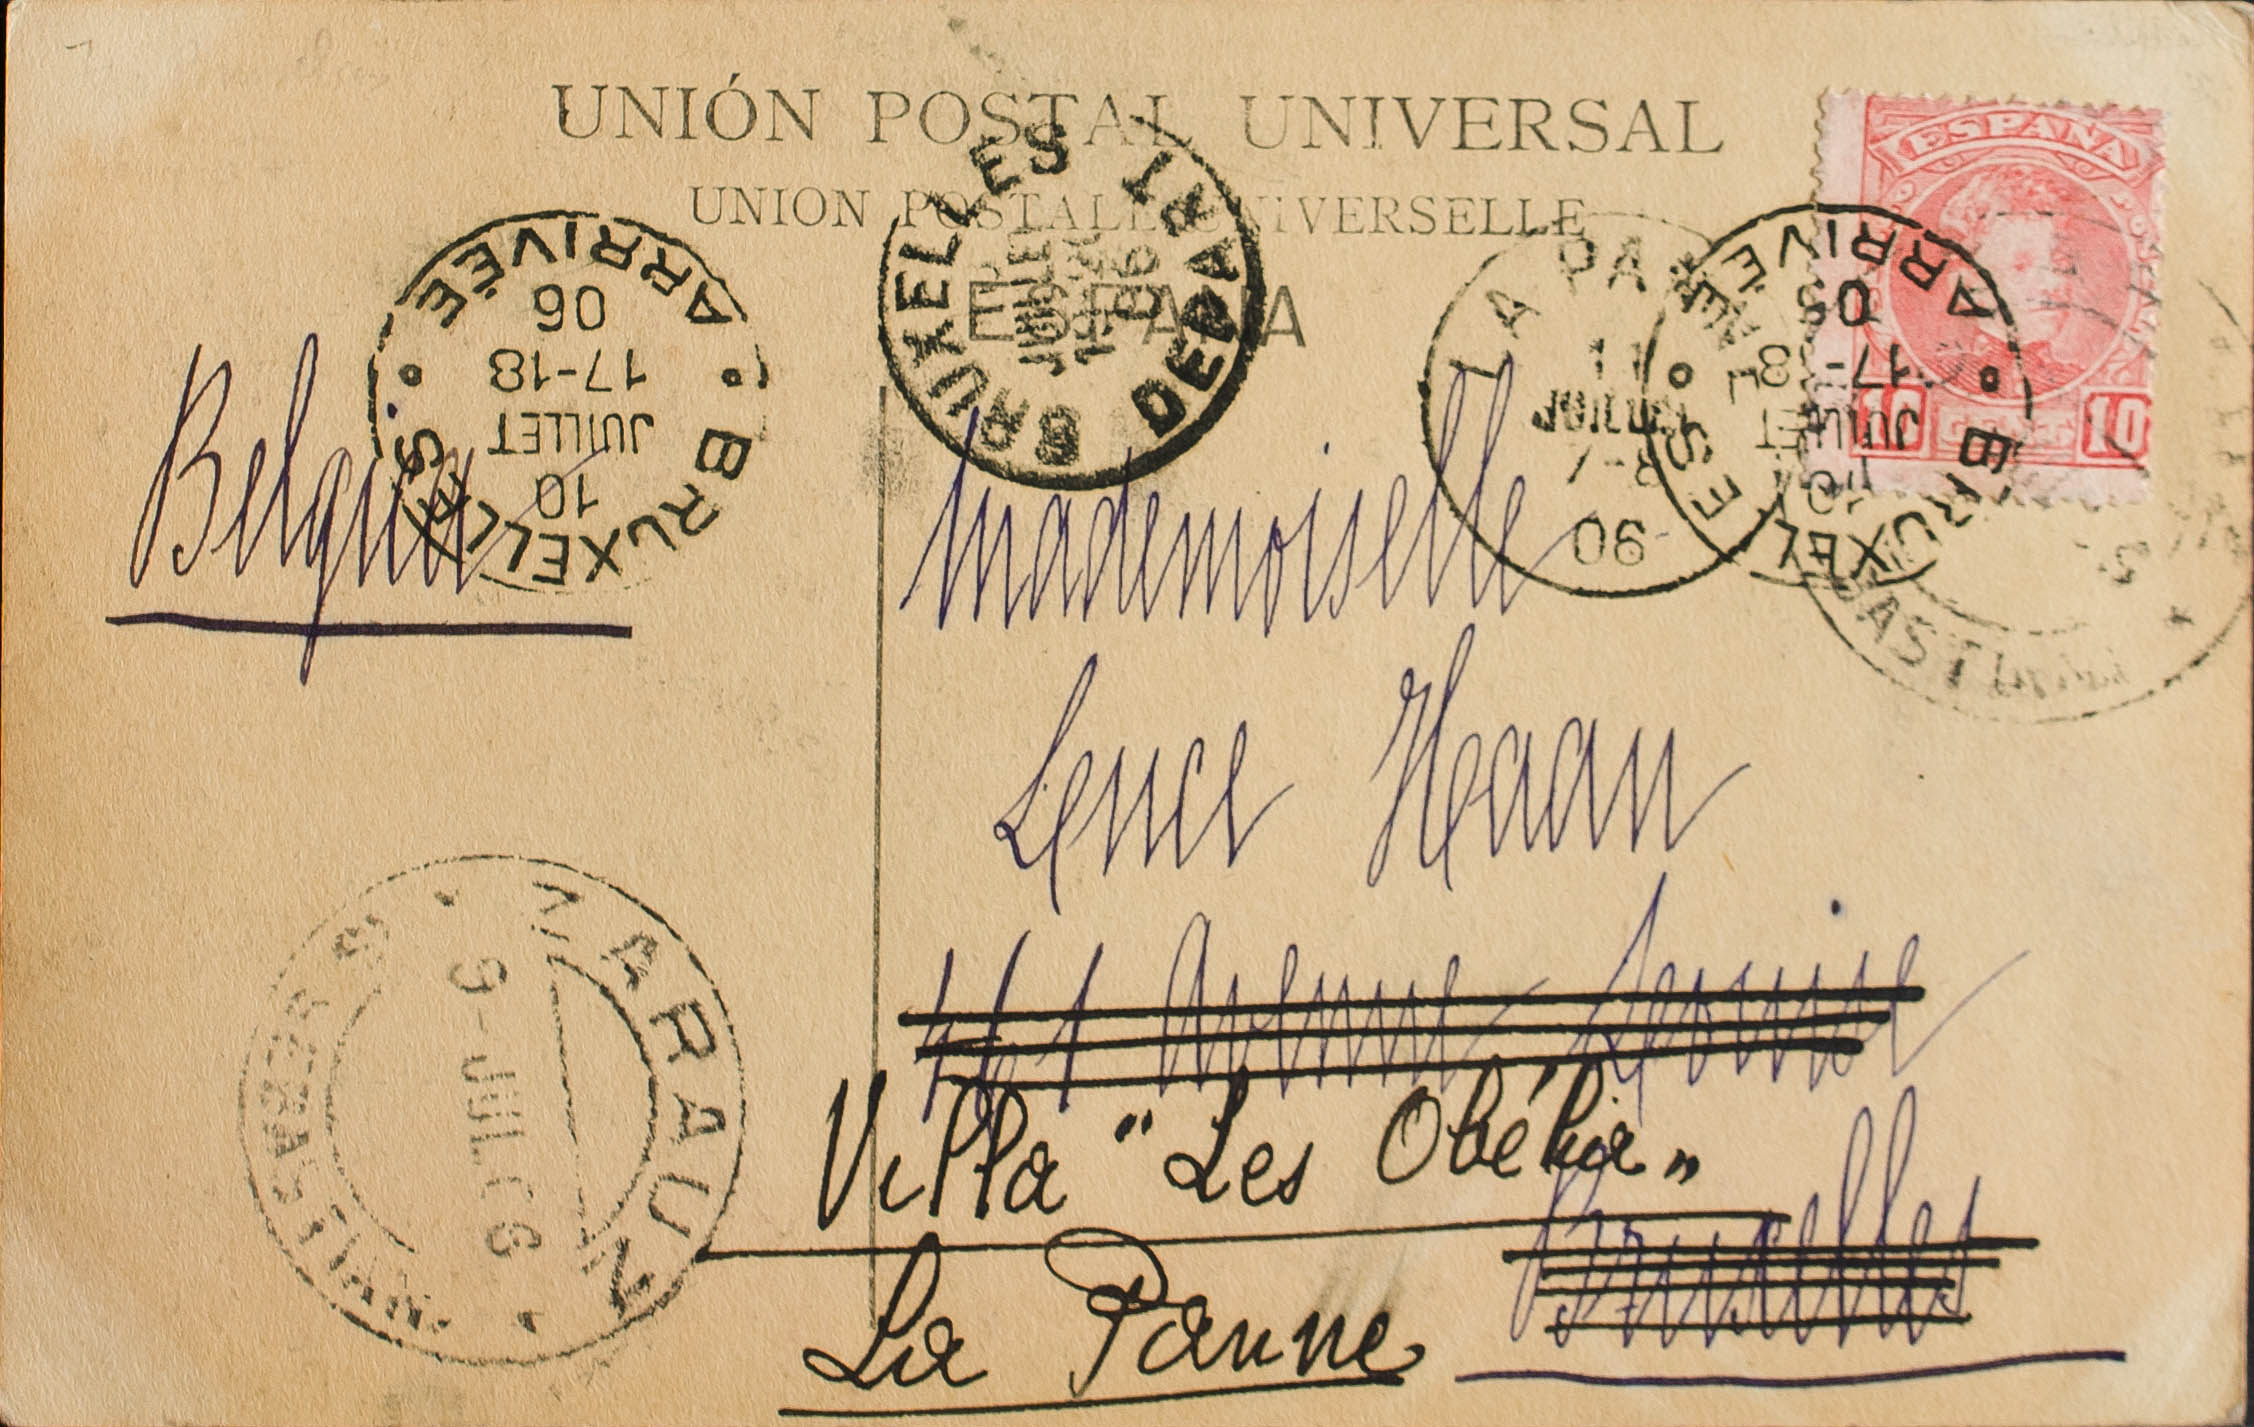 UNIÓN POSTAL UNIVERSAL
UNION POSTALE UNIVERSELLE
ESPAÑA
ESPAÑA
10 10
BRUXELLES DEPART
BRUXELLES ARRIVÉE
10
JUILLET
17-18
06
LA PANNE
11
JUILLET
BRUXELLES ARRIVÉE
10
JUILLET
17-18
06
Belgica
Mademoiselle
Haan
Avenue Louise
Villa "Les
Bruxelles
La Panne
9-JUL 06